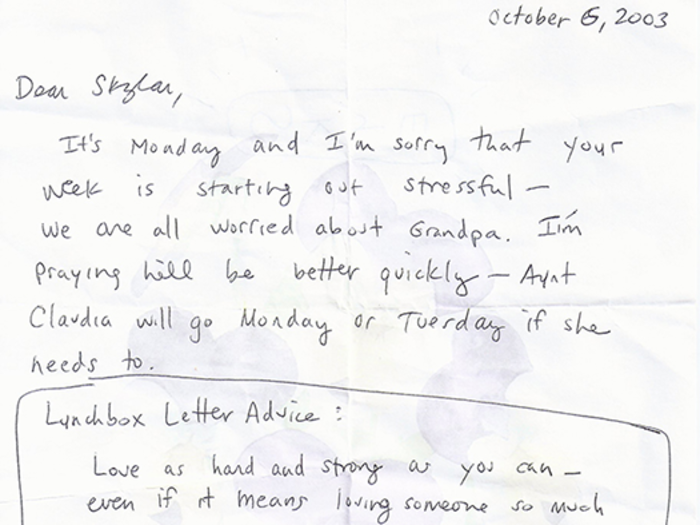 October 6, 2003
Dear Skylar,
It's Monday and I'm sorry that your
week is starting out stressful –
we are all worried about Grandpa. I'm
praying he'll be better quickly – Aunt
Claudia will go Monday or Tuesday if she
needs to.
Lunchbox Letter Advice:
Love as hard and strong as you can –
even if it means loving someone so much